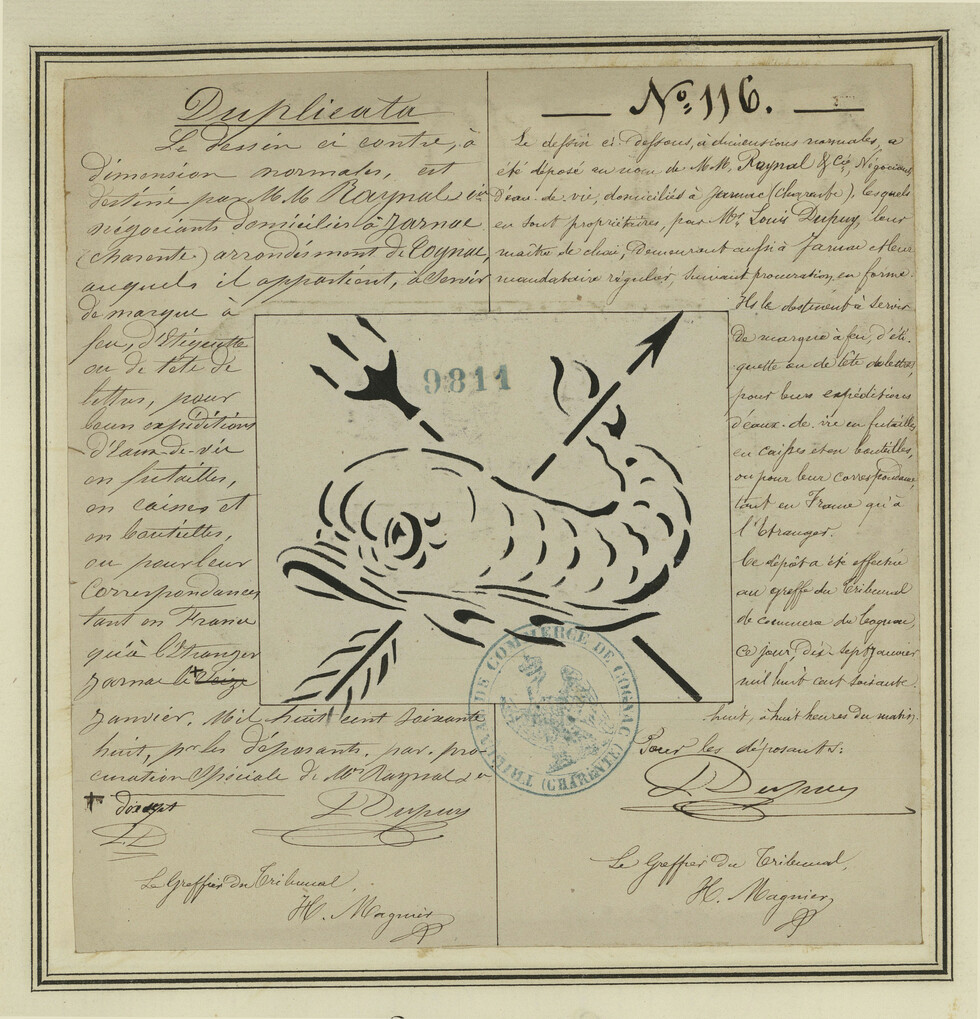 Duplicata
Le dessin ci contre, à
dimension normales, est
destiné par M.M. Raynal & Cie
négociants domiciliés à Jarnac
(charente) arrondissment de Cognac,
auquels il appartient, à Servir
de marque à
feu, d'Etiquette
ou de tête de
lettres, pour
leurs expéditions
d'Eaux-de-vie
en futailles,
en caisses et
en bouteilles,
ou pour leur
Correspondances
tant en France
qu'à l'Etranger
Jarnac le seize
Janvier, Mil huit cent soixante
huit, pr les déposants, par pro-
curation Spéciale de Mrs Raynal & Cie
+ dixsept
L D
L Dupuy
Le Greffier du Tribunal,
H. Magnier
No 116.
Le dessin ci Dessous, à dimensions normales, a
été déposé au nom de M.M. Raynal & Cie, Négociants
d'eau-de-vie, domiciliés à Jarnac (Charente), lesquels
en sont propriétaires, par Mr Louis Dupuy, leur
maître de chai, Demeurant aussi à Jarnac et leur
mandataire régulier, suivant procuration en forme.
Ils le destinent à servir
de marque à feu, d'éti-
quette ou de tête de lettres,
pour leurs expéditions
d'eaux-de-vie en futailles,
en caisses et en bouteilles,
ou pour leur correspondance
tant en France qu'à
l'Etranger.
Ce dépôt a été effectué
au greffe du Tribunal
de commerce de Cognac,
ce jour, Dix-sept janvier
mil huit cent soixante
huit, à huit heures du matin.
Pour les déposants:
L Dupuy
Le Greffier du Tribunal,
H. Magnier
9811
TRIBUNAL DE COMMERCE DE COGNAC
(CHARENTE)